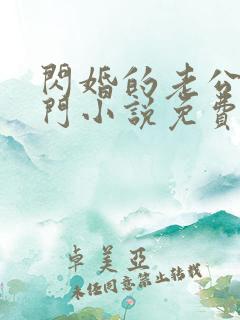 閃婚的老公
門小說免費
卓美亞
未經同意禁止轉載